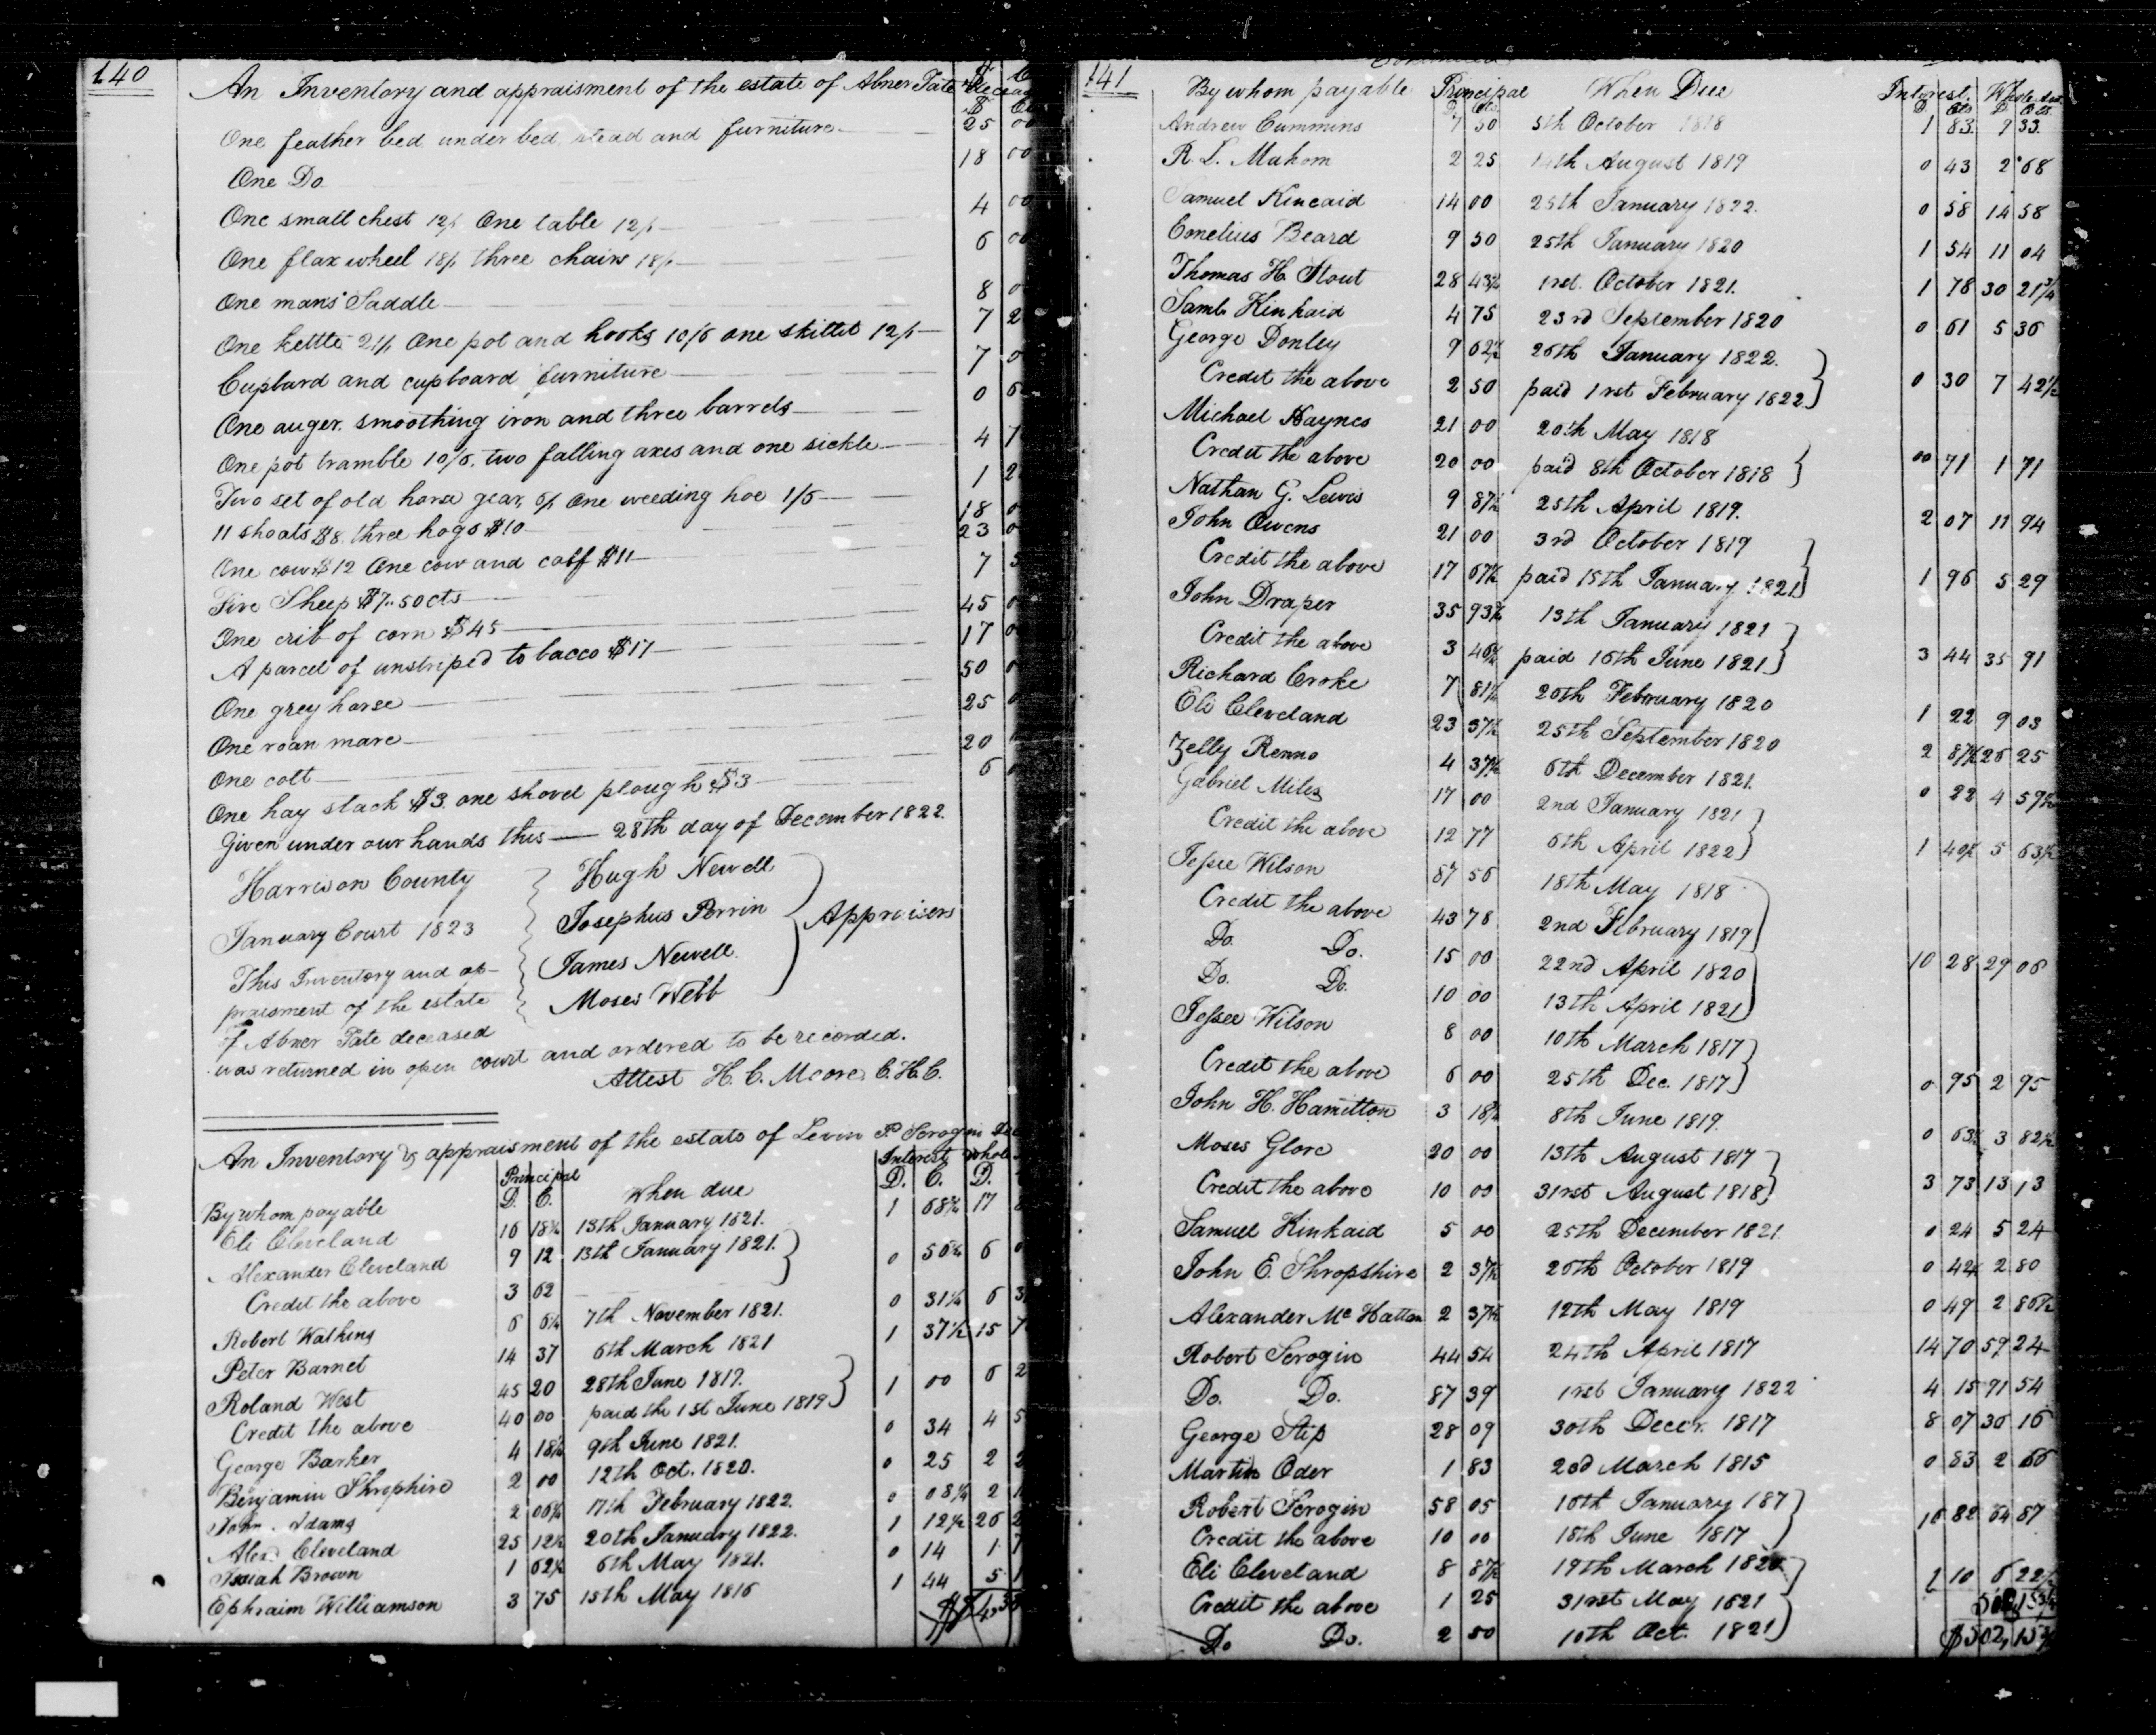 140
An Inventory and appraisment of the estate of Abner Tate
One feather bed under bed stead and furniture 25 00
One Do 18 00
One small chest 12/ One table 12/ 4 00
One flax wheel 18/ three chairs 18/ 6 00
One mans Saddle 8 0
One kettle 21/ One pot and hooks 10/6 one skillet 12/ 7 2
Cupbard and cupboard furniture 7 0
One auger. smoothing iron and three barrels 0 6
One pot tramble 10/6. two falling axes and one sickle 4 7
Two set of old horse gear, 6/ One weeding hoe 1/6 1 2
11 shoats $8. three hogs $10 18 0
One cow $12 One cow and calf $11 23 0
Five Sheep $7..50cts 7 5
One crib of corn $45 45 0
A parcel of unstriped tobacco $17 17 0
One grey horse 50 0
One roan mare 25 0
One colt 20
One hay stack $3. one shovel plough $3 6
Given under our hands this 28th day of December 1822.
Harrison County Hugh Newell
January Court 1823 Josephus Perrin Appraisers
This Inventory and ap- James Newell
praisment of the estate Moses Webb
of Abner Tate deceased
was returned in open court and ordered to be recorded.
Attest H. C. Moore C. H. C.
An Inventory & appraisment of the estate of Levin P. Scrogin
Principal Interest whole
By whom payable D. C. When due D. C. D.
Eli Cleveland 16 18¾ 13th January 1821. 1 68¾ 17
Alexander Cleveland 9 12 13th January 1821. 0 56¼ 6
Credit the above 3 62
Robert Watkins 6 6¼ 7th November 1821. 0 31¼ 6 3
Peter Barnet 14 37 6th March 1821 1 37½ 15 7
Roland West 45 20 28th June 1817. 1 00 6 2
Credit the above 40 00 paid the 1st June 1819
George Barker 4 18¾ 9th June 1821. 0 34 4 5
Benjamin Shropshire 2 00 12th Oct. 1820. 0 25 2 2
John Adams 2 06¼ 17th February 1822. 0 08¼ 2 1
Alexd Cleveland 25 12½ 20th January 1822. 1 12½ 26 2
Isaiah Brown 1 62½ 6th May 1821. 0 14 1 7
Ephraim Williamson 3 75 15th May 1816 1 44 5 1
141
By whom payable Principal When Due Interest. Whole
Andrew Cummins 7 50 5th October 1818 1 83 9 33.
R. L. Mahorn 2 25 14th August 1819 0 43 2 68
Samuel Kincaid 14 00 25th January 1822. 0 58 14 58
Cornelius Beard 9 50 25th January 1820 1 54 11 04
Thomas H. Stout 28 43¾ 1rst October 1821. 1 78 30 21¾
Saml. Kinkaid 4 75 23rd September 1820 0 61 5 36
George Donley 9 62½ 26th January 1822.
Credit the above 2 50 paid 1rst February 1822 0 30 7 42½
Michael Haynes 21 00 20th May 1818
Credit the above 20 00 paid 8th October 1818 00 71 1 71
Nathan G. Lewis 9 87½ 25th April 1819. 2 07 11 94
John Owens 21 00 3rd October 1819
Credit the above 17 67½ paid 15th January 1821 1 96 5 29
John Draper 35 93¾ 13th January 1821
Credit the above 3 46¾ paid 16th June 1821 3 44 35 91
Richard Croke 7 81¼ 20th February 1820 1 22 9 03
Eli Cleveland 23 37½ 25th September 1820 2 87½ 26 25
Zelly Renno 4 37½ 6th December 1821. 0 22 4 59½
Gabriel Miles 17 00 2nd January 1821
Credit the above 12 77 6th April 1822 1 40½ 5 63½
Jesse Wilson 87 56 18th May 1818
Credit the above 43 78 2nd February 1819
Do. Do. 15 00 22nd April 1820 10 28 29 06
Do. Do. 10 00 13th April 1821
Jessee Wilson 8 00 10th March 1817
Credit the above 6 00 25th Dec. 1817 0 95 2 95
John H. Hamilton 3 18¾ 8th June 1819. 0 63¾ 3 82½
Moses Glore 20 00 13th August 1817
Credit the above 10 00 31rst August 1818 3 73 13 13
Samuel Kinkaid 5 00 25th December 1821. 0 24 5 24
John E. Shropshire 2 37½ 26th October 1819 0 42½ 2 80
Alexander Mc Hatton 2 37½ 12th May 1819 0 49 2 86½
Robert Scrogin 44 54 24th April 1817 14 70 59 24
Do. Do. 87 39 1rst January 1822 4 15 91 54
George Stip 28 09 30th Decer. 1817 8 07 36 16
Martin Oder 1 83 22d March 1815 0 83 2 66
Robert Scrogin 58 05 16th January 187
Credit the above 10 00 18th June 1817 16 82 64 87
Eli Cleveland 8 87½ 19th March 1820
Credit the above 1 25 31rst May 1821 1 10 6 22½
Do Do. 2 50 10th Oct. 1821 $502,15¾